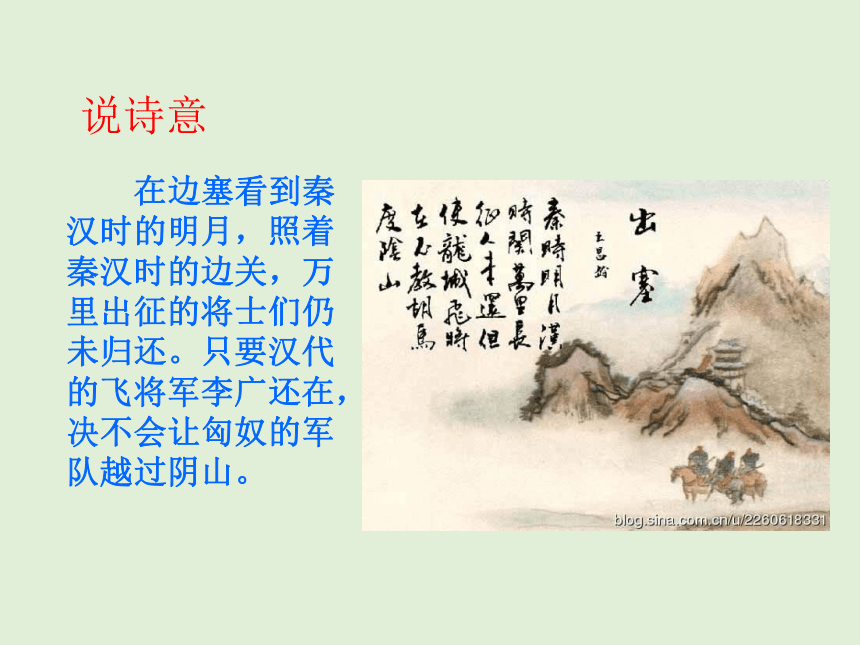 说诗意
在边塞看到秦
汉时的明月，照着
秦汉时的边关，万
里出征的将士们仍
未归还。只要汉代
的飞将军李广还在，
决不会让匈奴的军
队越过阴山。
出塞
王昌龄
秦時明月漢
時關萬里長
征人未還但
使龍城飛將
在不教胡馬
度陰山
blog.sina.com.cn/u/2260618331